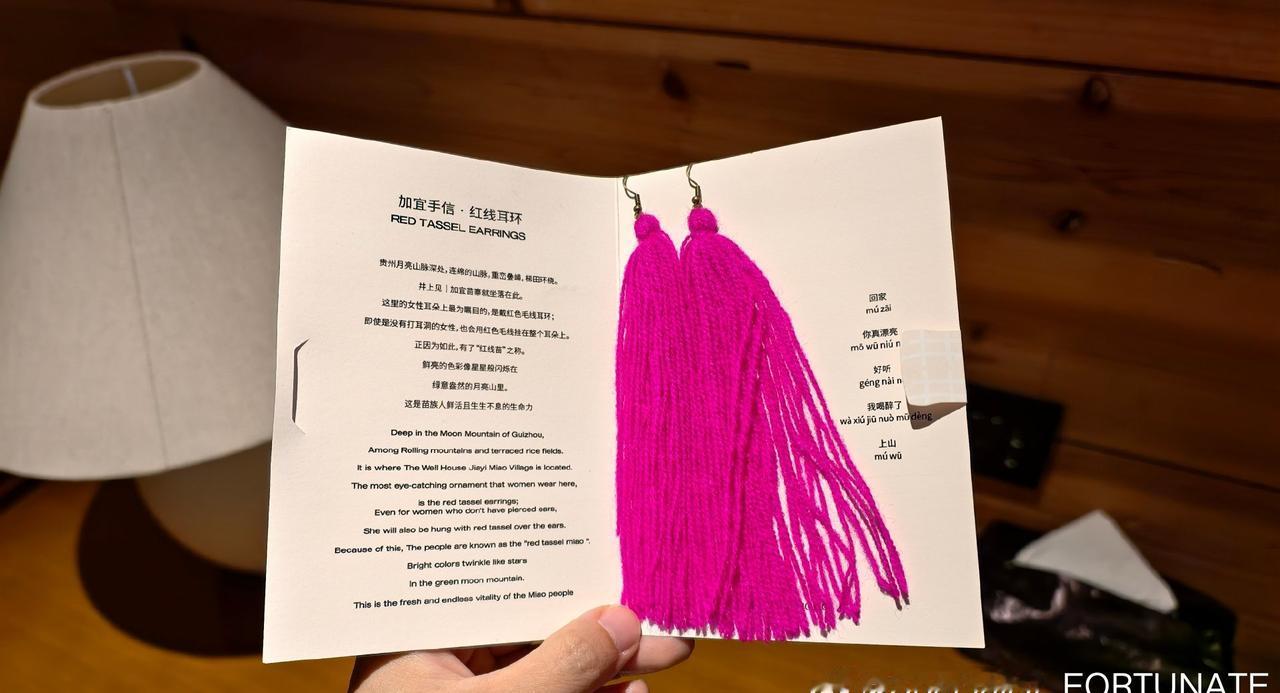 加宜手信·红线耳环
RED TASSEL EARRINGS
贵州月亮山脉深处,连绵的山脉,重峦叠嶂,梯田环绕。
井上见｜加宜苗寨就坐落在此。
这里的女性耳朵上最为瞩目的,是戴红色毛线耳环;
即使是没有打耳洞的女性,也会用红色毛线挂在整个耳朵上。
正因为如此,有了“红线苗”之称。
鲜亮的色彩像星星般闪烁在
绿意盎然的月亮山里。
这是苗族人鲜活且生生不息的生命力
Deep in the Moon Mountain of Guizhou,
Among Rolling mountains and terraced rice fields.
It is where The Well House Jiayi Miao Village is located.
The most eye-catching ornament that women wear here,
is the red tassel earrings;
Even for women who don't have pierced ears,
She will also be hung with red tassel over the ears.
Because of this, The people are known as the "red tassel miao ".
Bright colors twinkle like stars
In the green moon mountain.
This is the fresh and endless vitality of the Miao people
回家
mú zāi
你真漂亮
mō wū niú
好听
géng nài
我喝醉了
wà xiú jiū nuò mū dèng
上山
mú wū
FORTUNATE